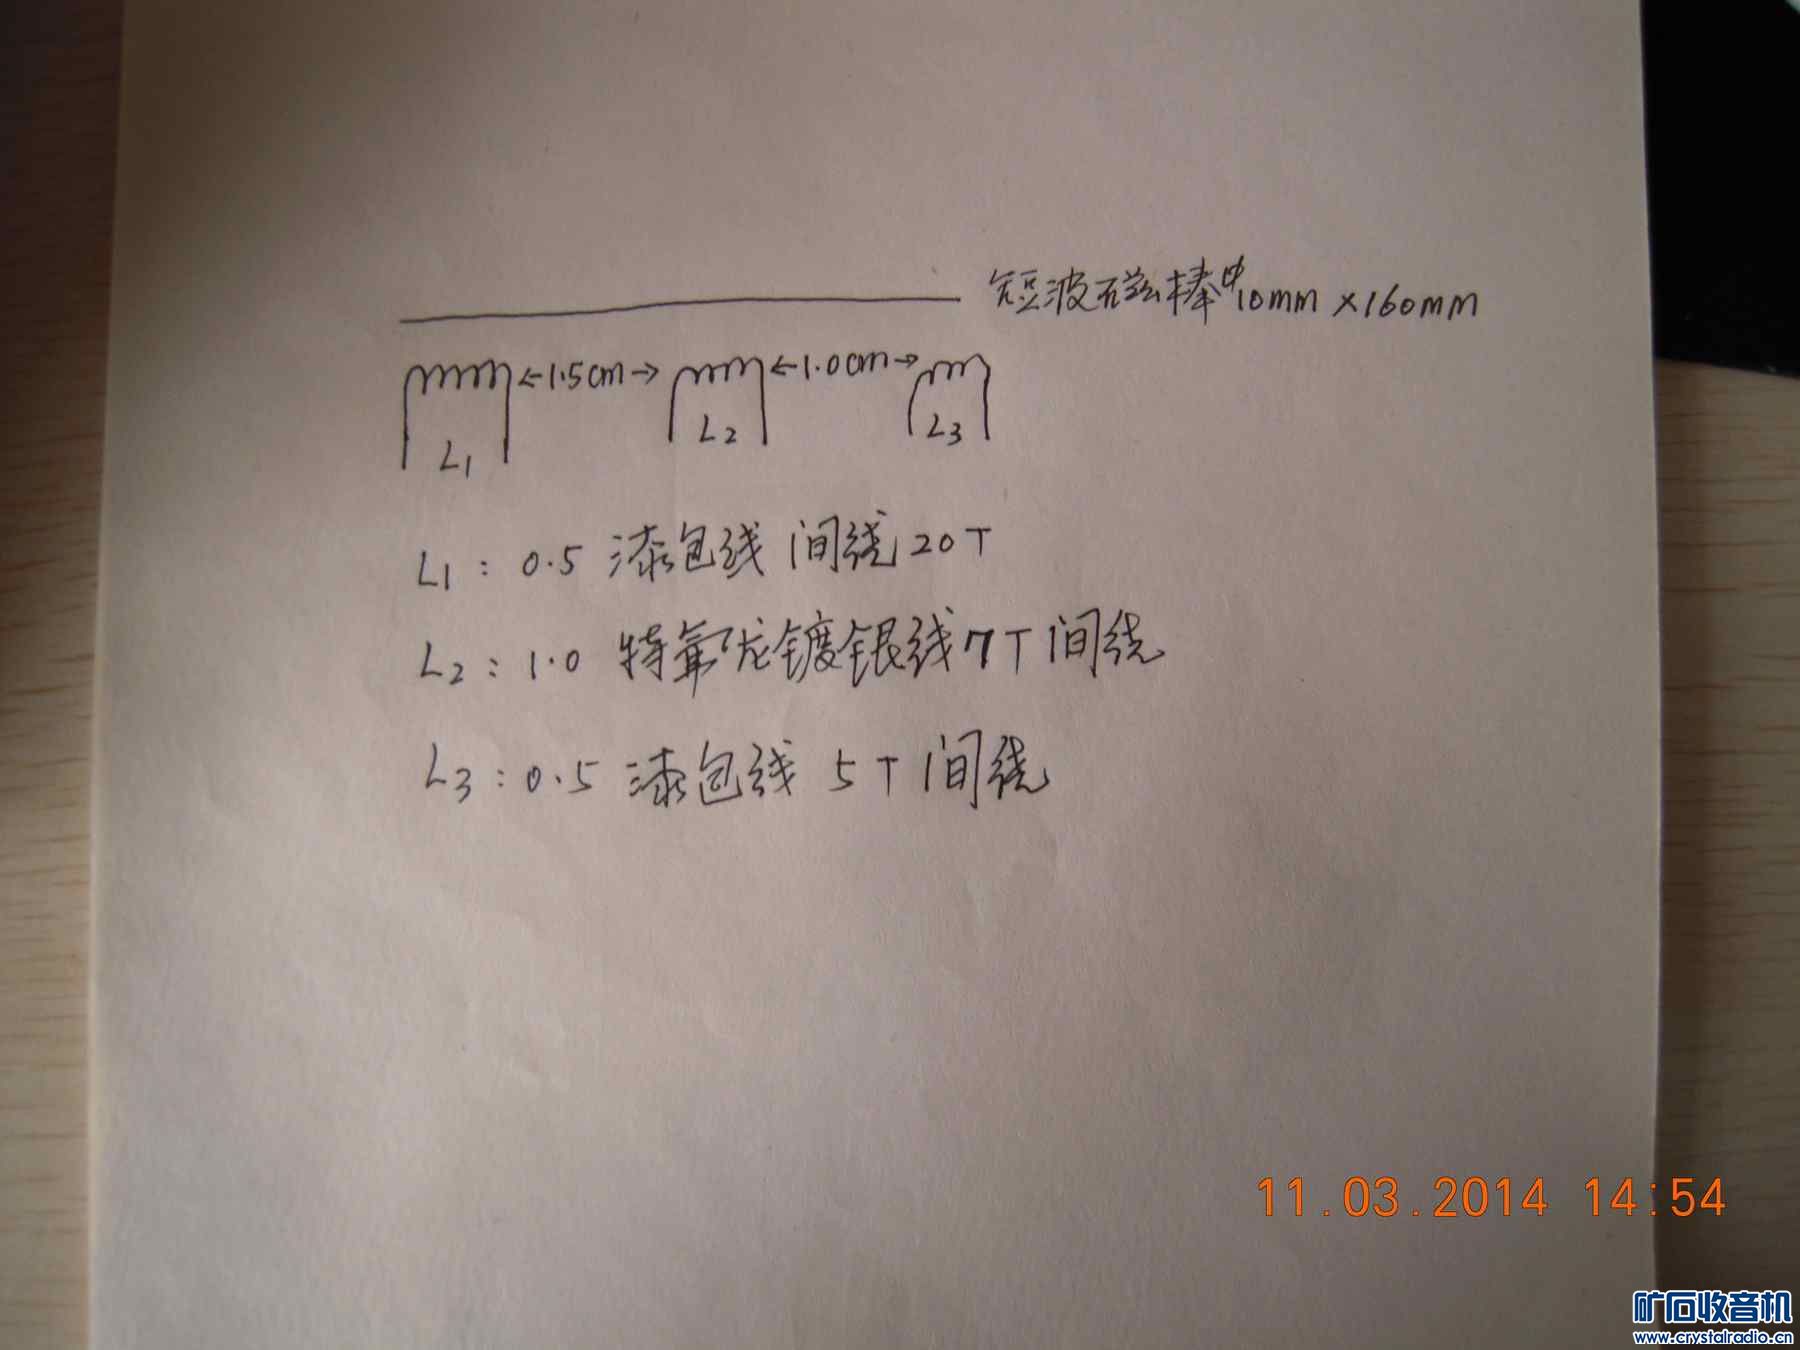 短波磁棒Φ10mm×160mm
←1.5cm→ ←1.0cm→
L1 L2 L3
L1：0.5 漆包线 间绕20T
L2：1.0 特氟龙镀银线7T间绕
L3：0.5 漆包线 5T间绕
11.03.2014 14:54
矿石收音机
www.crystalradio.cn